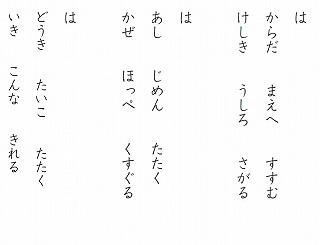 は
からだ　まえへ　すすむ
けしき　うしろ　さがる
は
あし　じめん　たたく
かぜ　ほっぺ　くすぐる
は
どうき　たいこ　たたく
いき　こんな　きれる